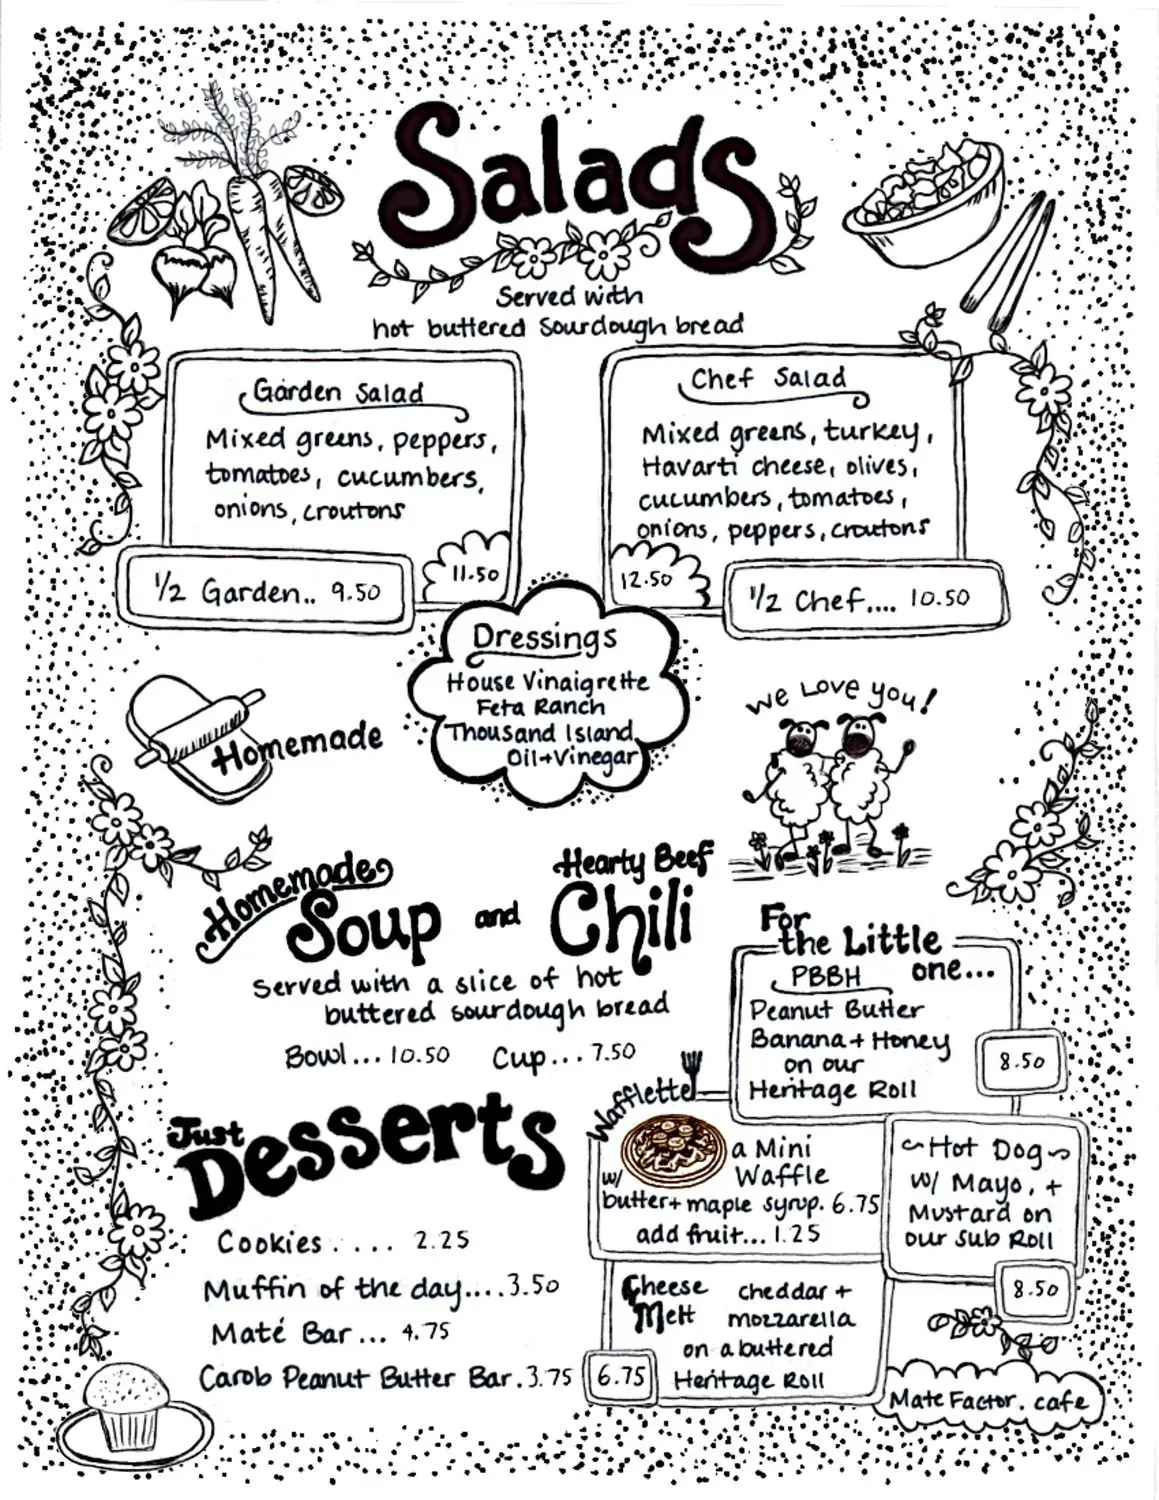 Salads
Served with
hot buttered Sourdough bread
Garden Salad
Mixed greens, peppers,
tomatoes, cucumbers,
onions, croutons
11.50
1/2 Garden.. 9.50
Chef Salad
Mixed greens, turkey,
Havarti cheese, olives,
cucumbers, tomatoes,
onions, peppers, croutons
12.50
1/2 Chef.... 10.50
Dressings
House Vinaigrette
Feta Ranch
Thousand Island
Oil+Vinegar
Homemade
We Love you!
Homemade
Soup and
Hearty Beef
Chili
Served with a slice of hot
buttered sourdough bread
Bowl... 10.50 Cup... 7.50
For
the Little
one...
PBBH
Peanut Butter
Banana + Honey
on our
Heritage Roll
8.50
Wafflette
a Mini
Waffle
w/
butter + maple syrup. 6.75
add fruit... 1.25
~Hot Dog~
w/ Mayo, +
Mustard on
our Sub Roll
8.50
Cheese
Melt
cheddar +
mozzarella
on a buttered
Heritage Roll
6.75
Just
Desserts
Cookies..... 2.25
Muffin of the day....3.50
Maté Bar... 4.75
Carob Peanut Butter Bar. 3.75
Mate Factor. cafe